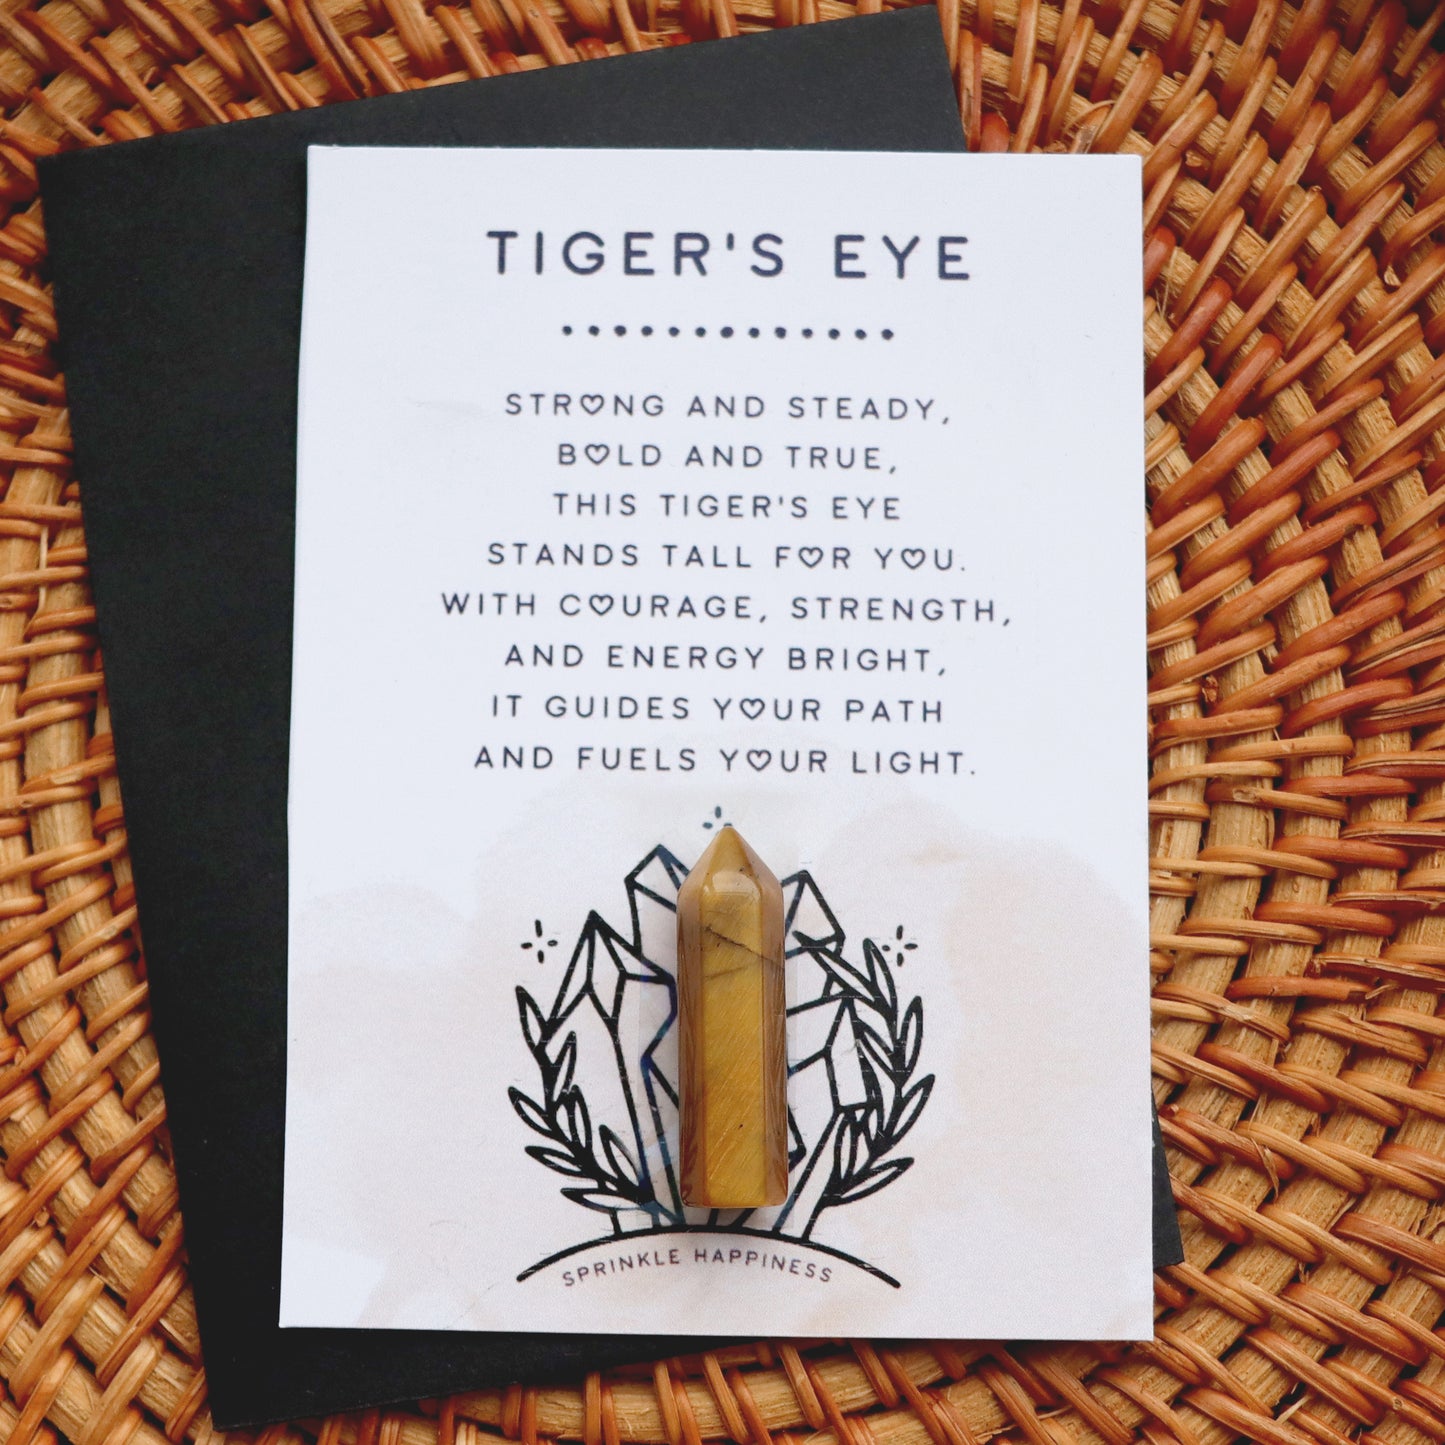 TIGER'S EYE
STRONG AND STEADY,
BOLD AND TRUE,
THIS TIGER'S EYE
STANDS TALL FOR YOU.
WITH COURAGE, STRENGTH,
AND ENERGY BRIGHT,
IT GUIDES YOUR PATH
AND FUELS YOUR LIGHT.
SPRINKLE HAPPINESS